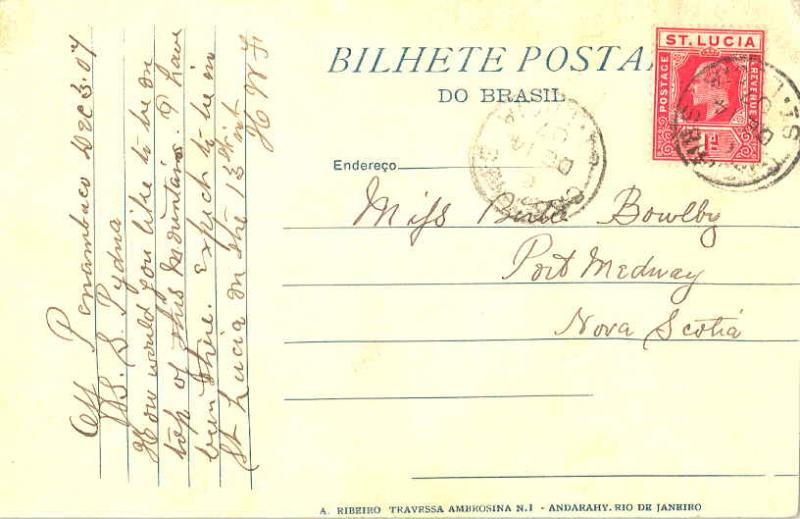 BILHETE POSTAL
DO BRASIL
ST. LUCIA
POSTAGE
REVENUE
1d
Endereço
Miss Bowlby
Port Medway
Nova Scotia
Off Penambuco Dec 3. 07
S.S. Pydna
How would you like to be on
top of this mountains. I have
been there. Expect to be in
St Lucia on the 13th inst
H W F
A. RIBEIRO TRAVESSA AMBROSINA N.1 - ANDARAHY. RIO DE JANEIRO